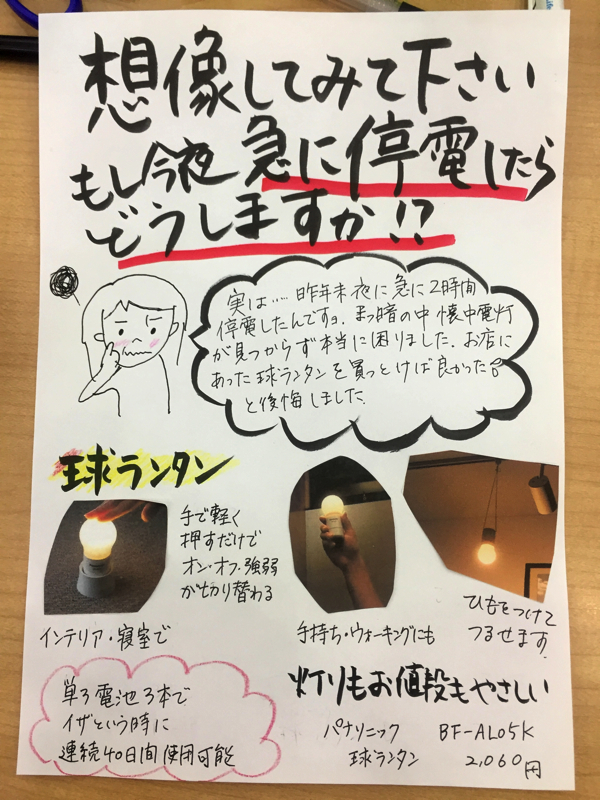 想像してみて下さい
もし今夜急に停電したら
どうしますか!?
実は……昨年末夜に急に2時間
停電したんですョ．まっ暗の中懐中電灯
が見つからず本当に困りました．お店に
あった球ランタンを買っとけば良かった
と後悔しました．
球ランタン
手で軽く
押すだけで
オン・オフ・強弱
が切り替わる
インテリア・寝室で
手持ち・ウォーキングにも
ひもをつけて
つるせます．
単3電池3本で
イザという時に
連続40日間使用可能
灯りもお値段もやさしい
パナソニック BF-AL05K
球ランタン 2,060円